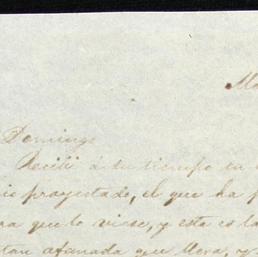 Domingo
Recibí á su tiempo tu
proyectado, el que ha
que lo viese, y esta es la
tan afanada que